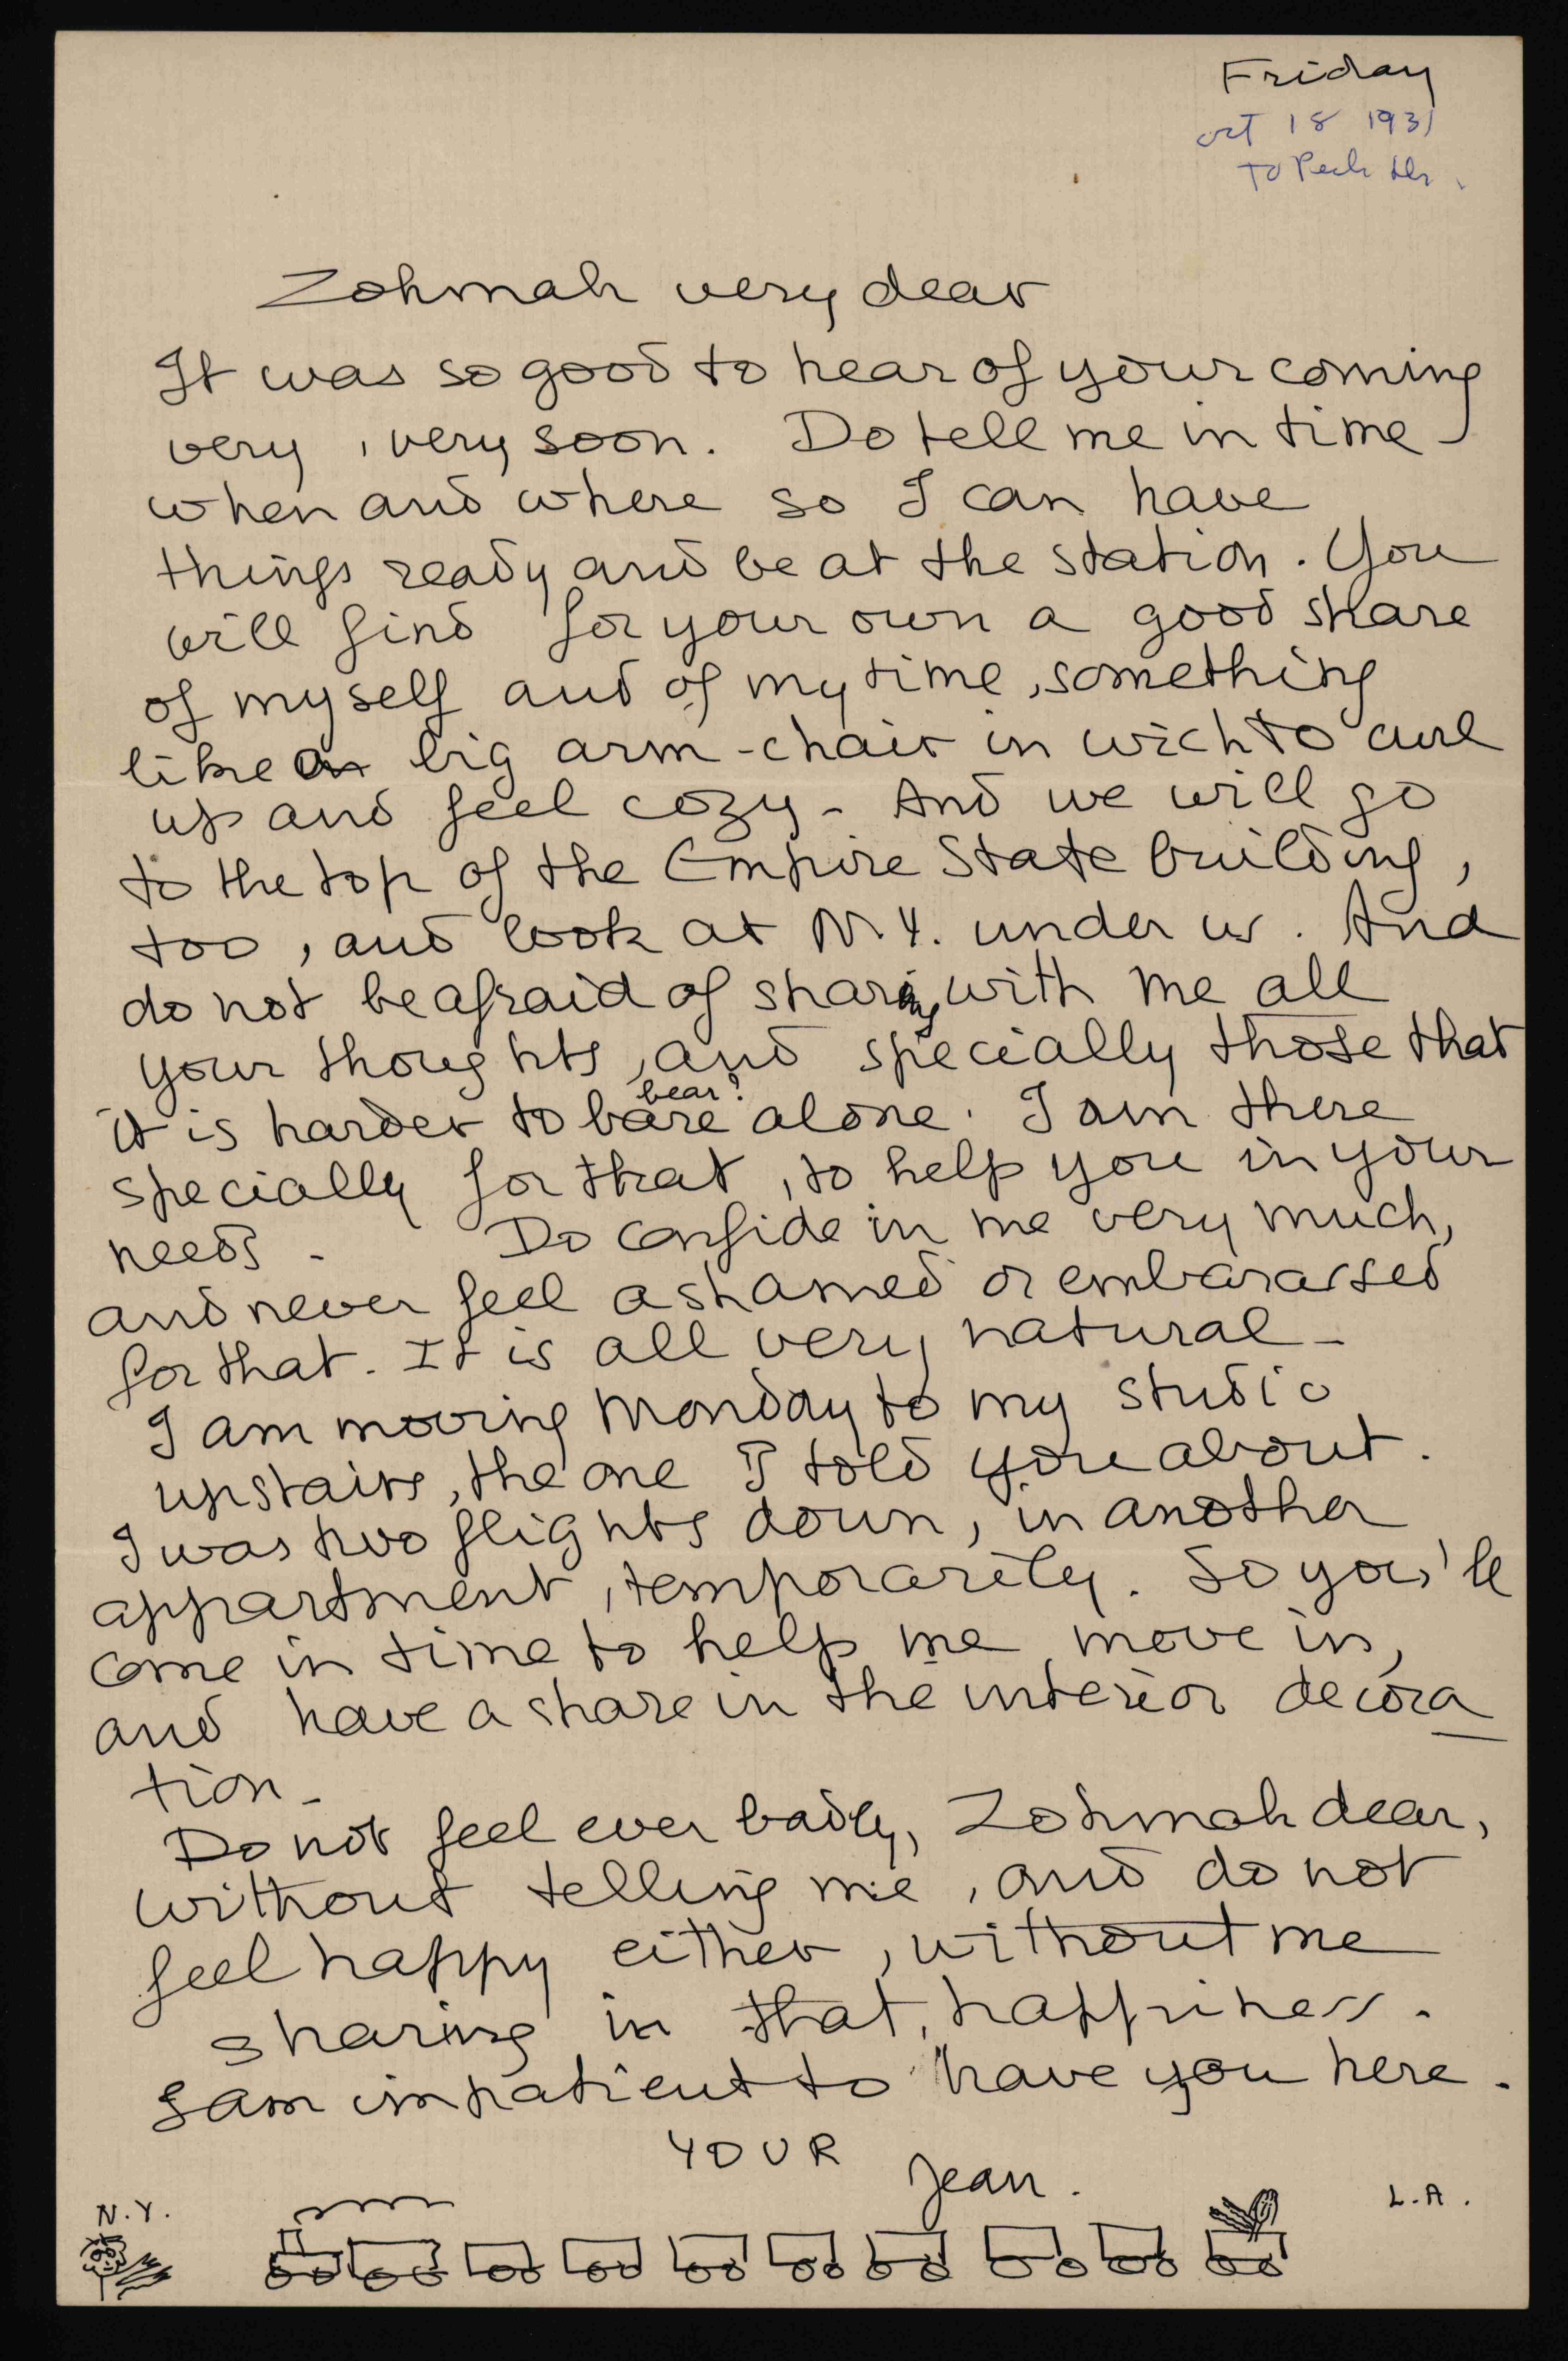 Friday
oct 18 1931
To Peck Dr.
Zohmah very dear
It was so good to hear of your coming
very, very soon. Do tell me in time
when and where so I can have
things ready and be at the station. You
will find for your own a good share
of myself and of my time, something
like a big arm-chair in wich to curl
up and feel cozy - And we will go
to the top of the Empire State building,
too, and look at N.Y. under us. And
do not be afraid of sharing with me all
your thoughts, and specially those that
bear?
it is harder to bare alone. I am there
specially for that, to help you in your
needs - Do confide in me very much,
and never feel ashamed or embarassed
for that. It is all very natural -
I am moving Monday to my studio
upstairs, the one I told you about.
I was two flights down, in another
appartment, temporarily. So you'll
come in time to help me move in,
and have a share in the interior decora
tion -
Do not feel ever badly, Zohmah dear,
without telling me, and do not
feel happy either, without me
sharing in that happiness.
I am impatient to have you here.
YOUR
Jean.
N.Y.
L.A.